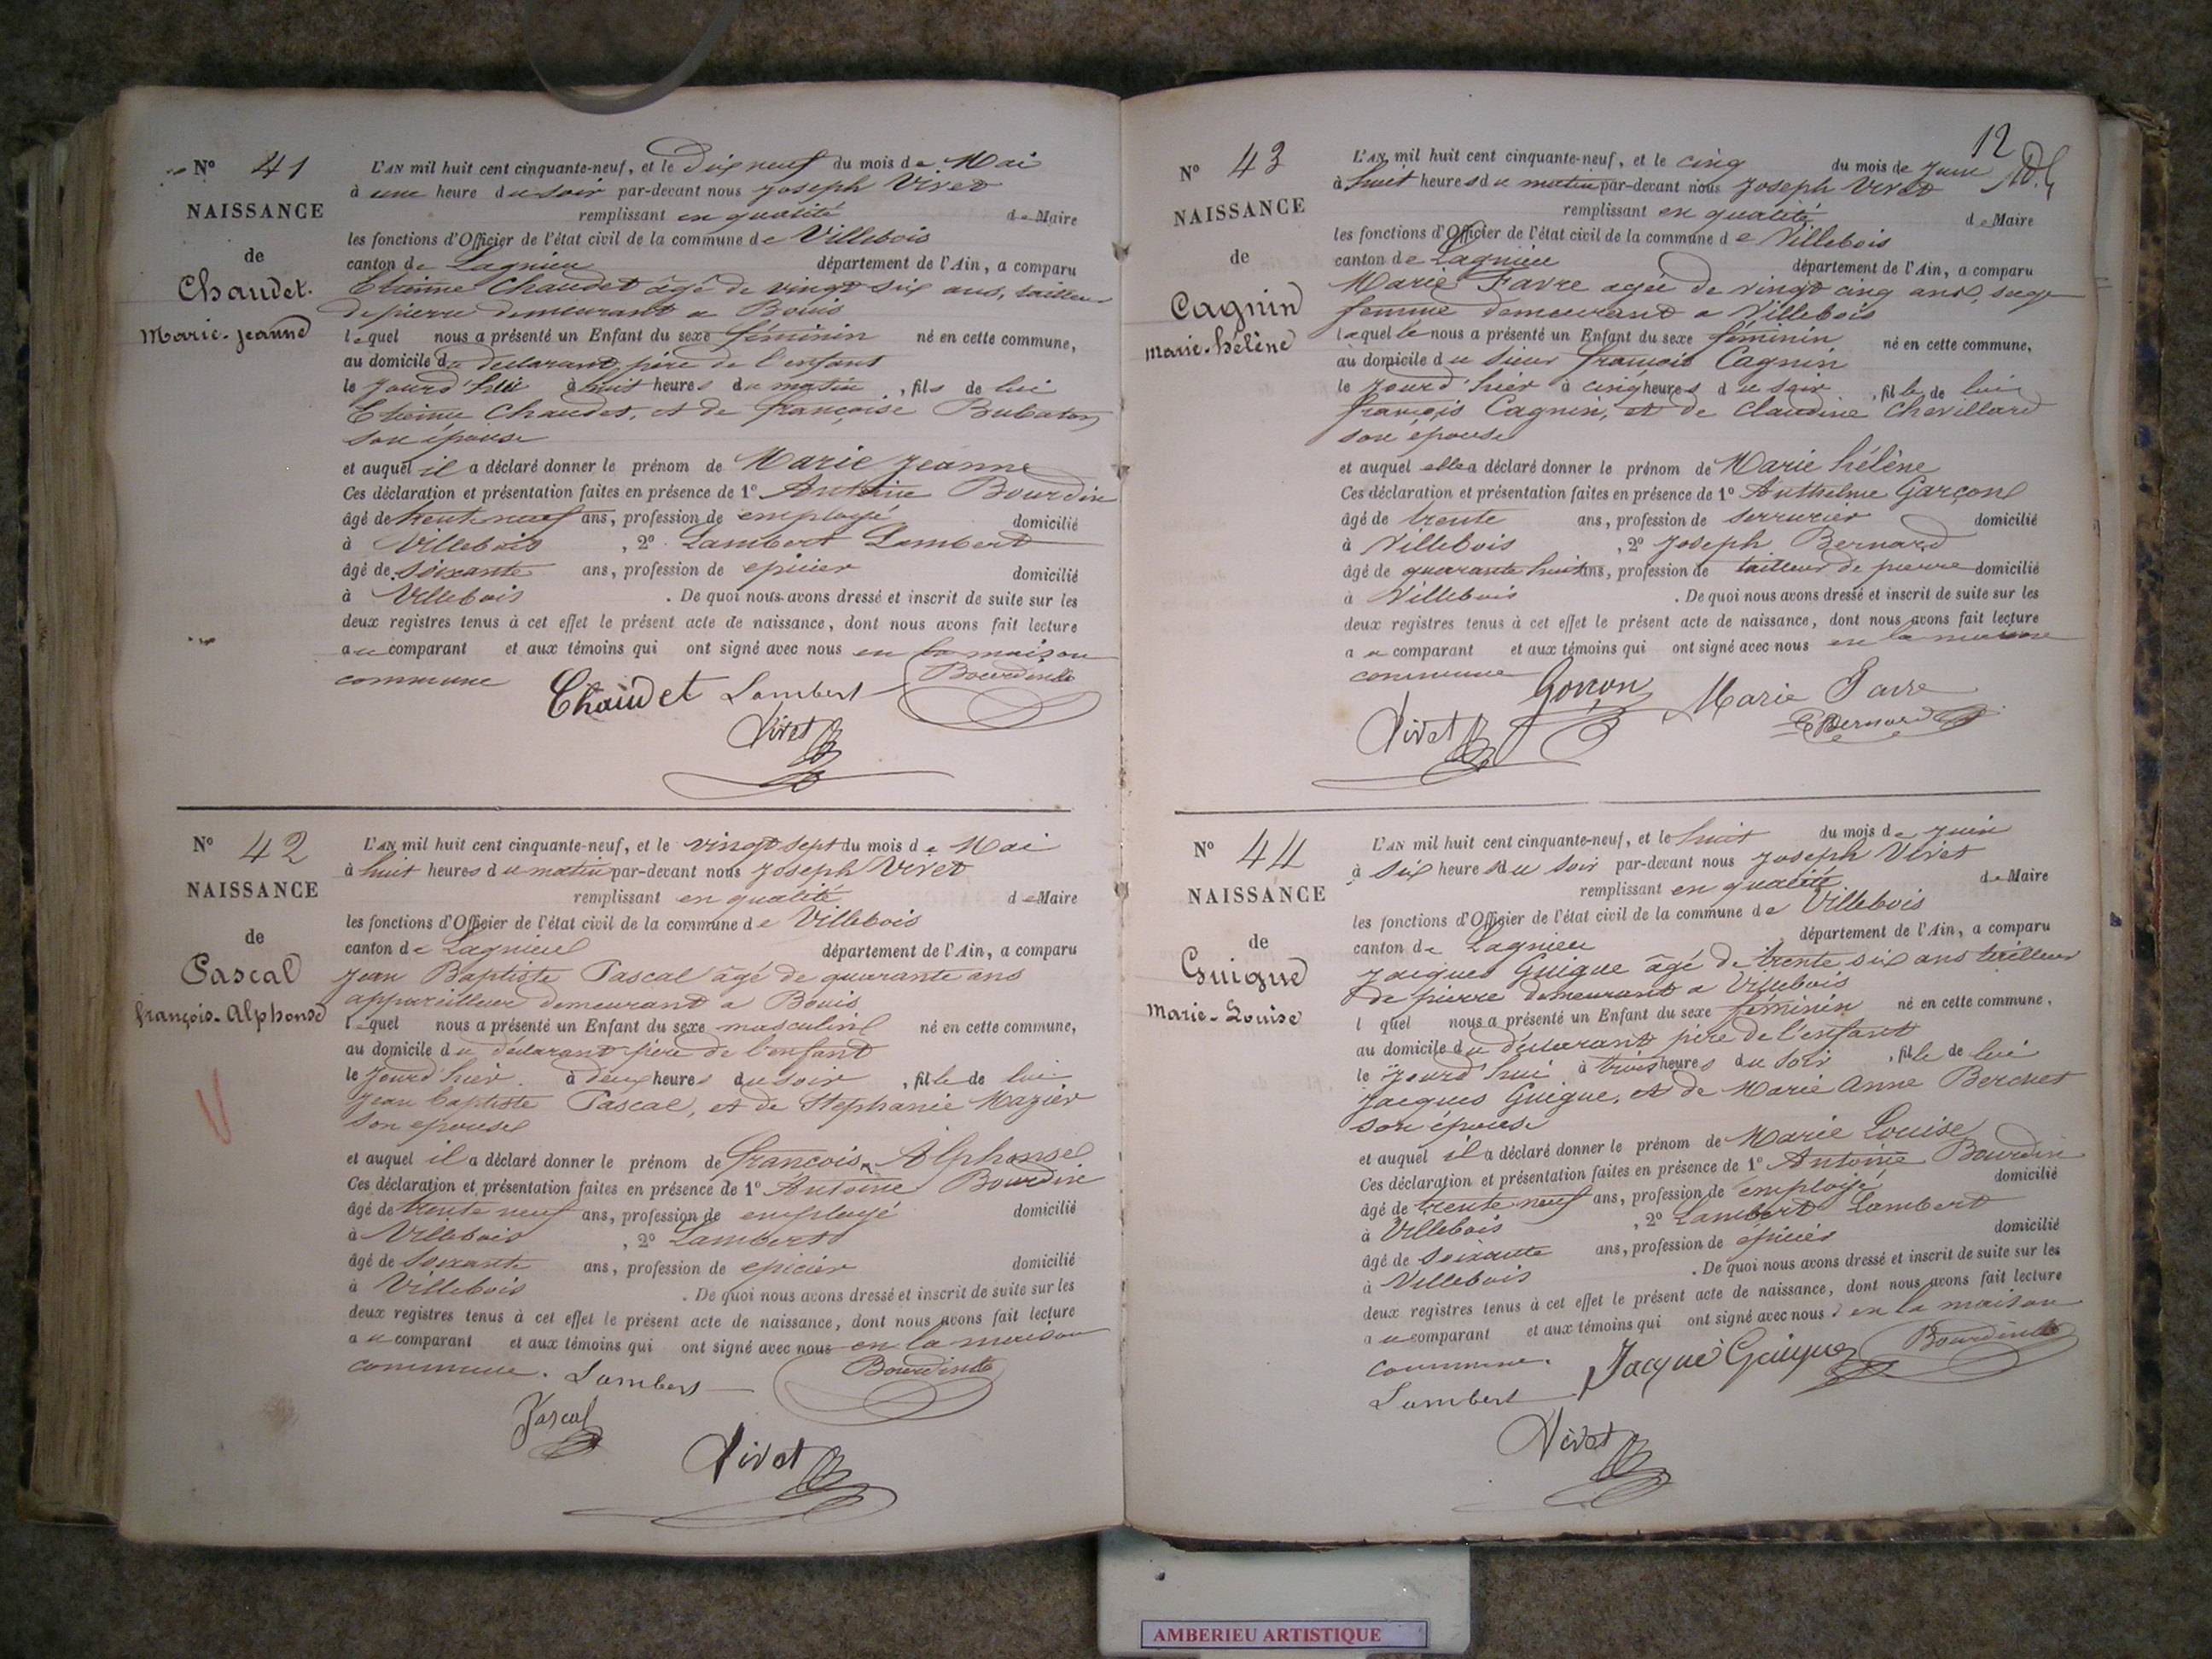 N° 41
NAISSANCE
de
Chaudet.
Marie-Jeanne
L'AN mil huit cent cinquante-neuf, et le Dix neuf du mois de Mai
à une heure du soir par-devant nous Joseph Vivet
remplissant en qualité de Maire
les fonctions d'Officier de l'état civil de la commune de Villebois
canton de Lagnieu département de l'Ain, a comparu
Etienne Chaudet âgé de vingt six ans, tailleur
de pierre demeurant a Bouis
lequel nous a présenté un Enfant du sexe féminin né en cette commune,
au domicile du déclarant père de l'enfant
le jourd'hui à huit heures du matin, fils de lui
Etienne Chaudet, et de françoise Bubaton
son épouse
et auquel il a déclaré donner le prénom de Marie Jeanne
Ces déclaration et présentation faites en présence de 1° Antoine Bourdin
âgé de trente neuf ans, profession de employé domicilié
à Villebois, 2° Lambert Lambert
âgé de soixante ans, profession de epicier domicilié
à Villebois. De quoi nous avons dressé et inscrit de suite sur les
deux registres tenus à cet effet le présent acte de naissance, dont nous avons fait lecture
au comparant et aux témoins qui ont signé avec nous en la maison
commune
Chaudet Lambert Bourdin
Vivet
N° 42
NAISSANCE
de
Pascal
françois-Alphonse
L'AN mil huit cent cinquante-neuf, et le vingt sept du mois de Mai
à huit heures du matin par-devant nous Joseph Vivet
remplissant en qualité de Maire
les fonctions d'Officier de l'état civil de la commune de Villebois
canton de Lagnieu département de l'Ain, a comparu
Jean Baptiste Pascal âgé de quarante ans
appareilleur demeurant a Bouis
lequel nous a présenté un Enfant du sexe masculin né en cette commune,
au domicile du déclarant père de l'enfant
le jourd'hier. à deux heures du soir, fil le de lui
Jean baptiste Pascal, et de Stephanie Mazier
son epouse
et auquel il a déclaré donner le prénom de françois, Alphonse
Ces déclaration et présentation faites en présence de 1° Antoine Bourdin
âgé de trente neuf ans, profession de employé domicilié
à Villebois, 2° Lambert
âgé de soixante ans, profession de epicier domicilié
à Villebois. De quoi nous avons dressé et inscrit de suite sur les
deux registres tenus à cet effet le présent acte de naissance, dont nous avons fait lecture
au comparant et aux témoins qui ont signé avec nous en la maison
commune. Lambert Bourdin
Pascal
Vivet
12
N° 43
NAISSANCE
de
Cagnin
marie-hélène
L'AN mil huit cent cinquante-neuf, et le cinq du mois de Juin
à huit heures du matin par-devant nous Joseph Vivet
remplissant en qualité de Maire
les fonctions d'Officier de l'état civil de la commune de Villebois
canton de Lagnieu département de l'Ain, a comparu
Marie Favre agée de vingt cinq ans, sage
femme demeurant a Villebois
laquelle nous a présenté un Enfant du sexe féminin né en cette commune,
au domicile du sieur françois Cagnin
le jourd'hier à cinq heures du soir, fil le de lui
françois Cagnin, et de Claudine Chevillard
son épouse
et auquel elle a déclaré donner le prénom de Marie hélène
Ces déclaration et présentation faites en présence de 1° Anthelme Garçon
âgé de trente ans, profession de serrurier domicilié
à Villebois, 2° Joseph Bernard
âgé de quarante huit ans, profession de tailleur de pierre domicilié
à Villebois. De quoi nous avons dressé et inscrit de suite sur les
deux registres tenus à cet effet le présent acte de naissance, dont nous avons fait lecture
au comparant et aux témoins qui ont signé avec nous en la maison
commune
Marie Favre
Vivet Bernard
N° 44
NAISSANCE
de
Guigue
Marie-Louise
L'AN mil huit cent cinquante-neuf, et le huit du mois de Juin
à six heures du soir par-devant nous Joseph Vivet
remplissant en qualité de Maire
les fonctions d'Officier de l'état civil de la commune de Villebois
canton de Lagnieu département de l'Ain, a comparu
Jacques Guigue âgé de trente six ans tailleur
de pierre demeurant a Villebois
l quel nous a présenté un Enfant du sexe féminin né en cette commune,
au domicile du déclarant père de l'enfant
le jourd'hui à trois heures du soir, fil le de lui
Jacques Guigue, et de Marie Anne Berchet
son épouse
et auquel il a déclaré donner le prénom de Marie Louise
Ces déclaration et présentation faites en présence de 1° Antoine Bourdin
âgé de trente neuf ans, profession de employé domicilié
à Villebois, 2° Lambert Lambert
âgé de soixante ans, profession de epicier domicilié
à Villebois. De quoi nous avons dressé et inscrit de suite sur les
deux registres tenus à cet effet le présent acte de naissance, dont nous avons fait lecture
au comparant et aux témoins qui ont signé avec nous en la maison
commune. Jacque Guigue Bourdin
Lambert
Vivet
AMBERIEU ARTISTIQUE